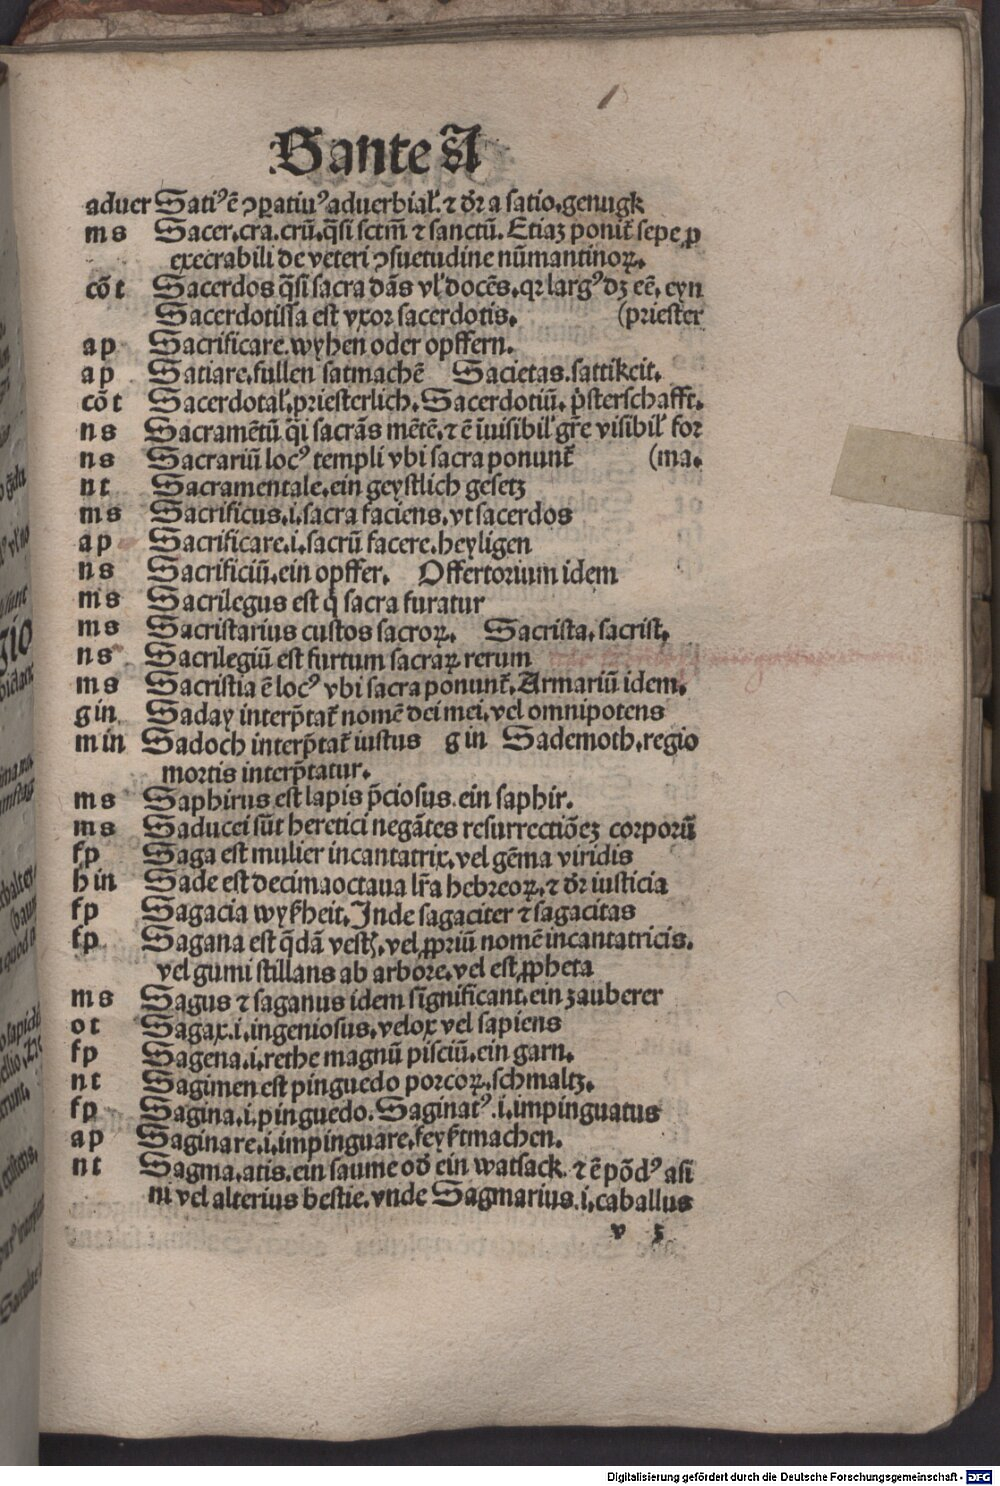 S ante A
aduer Sati⁹ ē ꝯꝑatiu⁹ aduerbial'. ⁊ dr̄ a satio. genugk
m s Sacer. cra. crū. q̄si sctm̄ ⁊ sanctū. Etiaʒ ponit̄ sepe ꝓ
execrabili de veteri ꝯsuetudine nūmantinoꝝ.
cō t Sacerdos q̄si sacra dās vl' docēs. qꝛ larg⁹ dʒ eē. eyn
Sacerdotissa est vxor sacerdotis. (priester
a p Sacrificare. wyhen oder opffern.
a p Satiare. fullen satmachē Sacietas. sattikeit.
cō t Sacerdotal'. priesterlich. Sacerdotiū. p̄sterschafft.
n s Sacramētū q̄i sacrās mētē. ⁊ ē īuisibil' gr̄e visibil' for
n s Sacrariū loc⁹ templi vbi sacra ponunt̄ (ma.
n t Sacramentale. ein geystlich gesetz
m s Sacrificus. i. sacra faciens. vt sacerdos
a p Sacrificare. i. sacrū facere. heyligen
n s Sacrificiū. ein opffer. Offertorium idem
m s Sacrilegus est q̄ sacra furatur
m s Sacristarius custos sacroꝝ. Sacrista. sacrist.
n s Sacrilegiū est furtum sacraꝝ rerum
m s Sacristia ē loc⁹ vbi sacra ponunt̄. Armariū idem.
g in Saday interp̄tat̄ nomē dei mei. vel omnipotens
m in Sadoch interp̄tat̄ iustus g in Sademoth. regio
mortis interp̄tatur.
m s Saphirus est lapis p̄ciosus. ein saphir.
m s Saducei sūt heretici negātes resurrectiōeʒ corporū
f p Saga est mulier incantatrix. vel gēma viridis
h in Sade est decimaoctaua lr̄a hebreoꝝ. ⁊ dr̄ iusticia
f p Sagacia wyßheit. Inde sagaciter ⁊ sagacitas
f p Sagana est q̄dā vestꝭ. vel ꝓpriū nomē incantatricis.
vel gumi stillans ab arbore. vel est ꝓpheta
m s Sagus ⁊ saganus idem significant. ein zauberer
o t Sagax. i. ingeniosus. velox vel sapiens
f p Sagena. i. rethe magnū pisciū. ein garn.
n t Sagimen est pinguedo porcoꝝ. schmaltz.
f p Sagina. i. pinguedo. Saginat⁹. i. impinguatus
a p Saginare. i. impinguare. feyßtmachen.
n t Sagma. atis. ein saume od̄ ein watsack. ⁊ ē pōd⁹ asi
ni vel alterius bestie. vnde Sagmarius. i. caballus
v 5
Digitalisierung gefördert durch die Deutsche Forschungsgemeinschaft - DFG